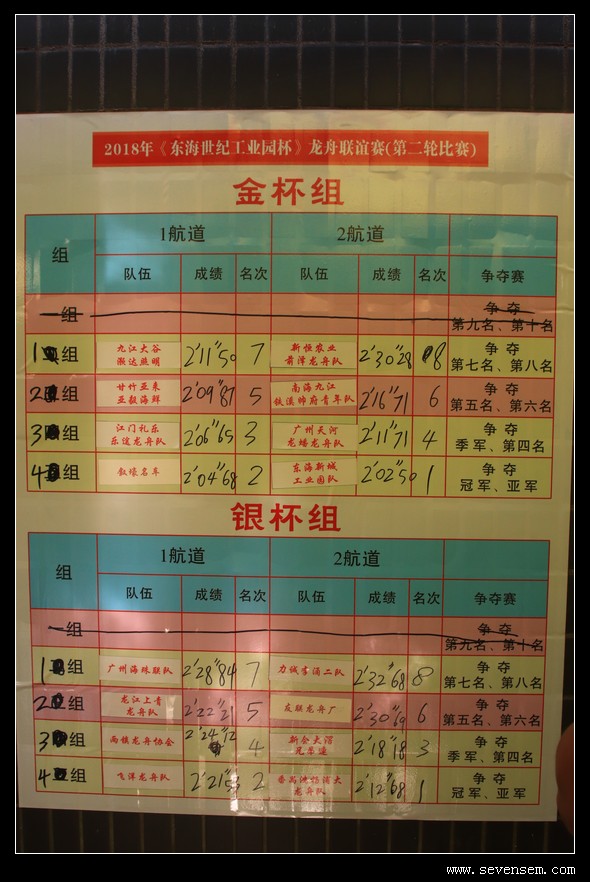 2018年《东海世纪工业园杯》龙舟联谊赛(第二轮比赛)
金杯组
组 1航道 2航道 争夺赛
队伍 成绩 名次 队伍 成绩 名次
一组 争夺
第九名、第十名
1组 九江大谷 2'11"50 7 新恒农业 2'30"28 8 争夺
灏达照明 前泽龙舟队 第七名、第八名
2组 甘竹亚来 2'09"87 5 南海九江 2'16"71 6 争夺
亚毅海鲜 铁滘帅府青年队 第五名、第六名
3组 江门礼乐 2'06"65 3 广州天河 2'11"71 4 争夺
乐途龙舟队 龙塘龙舟队 季军、第四名
4组 名车 2'04"68 2 东海新城 2'02"50 1 争夺
工业园队 冠军、亚军
银杯组
组 1航道 2航道 争夺赛
队伍 成绩 名次 队伍 成绩 名次
一组 争夺
第九名、第十名
1组 广州海珠联队 2'28"84 7 力诚李涌二队 2'32"68 8 争夺
第七名、第八名
2组 龙江上青 2'22"21 5 友联龙舟厂 2'30"69 6 争夺
龙舟队 第五名、第六名
3组 西镇龙舟协会 2'24"12 4 新会大滘 2'18"18 3 争夺
季军、第四名
4组 飞洋龙舟队 2'21"53 2 2'12"68 1 争夺
龙舟队 冠军、亚军
www.sevensem.com